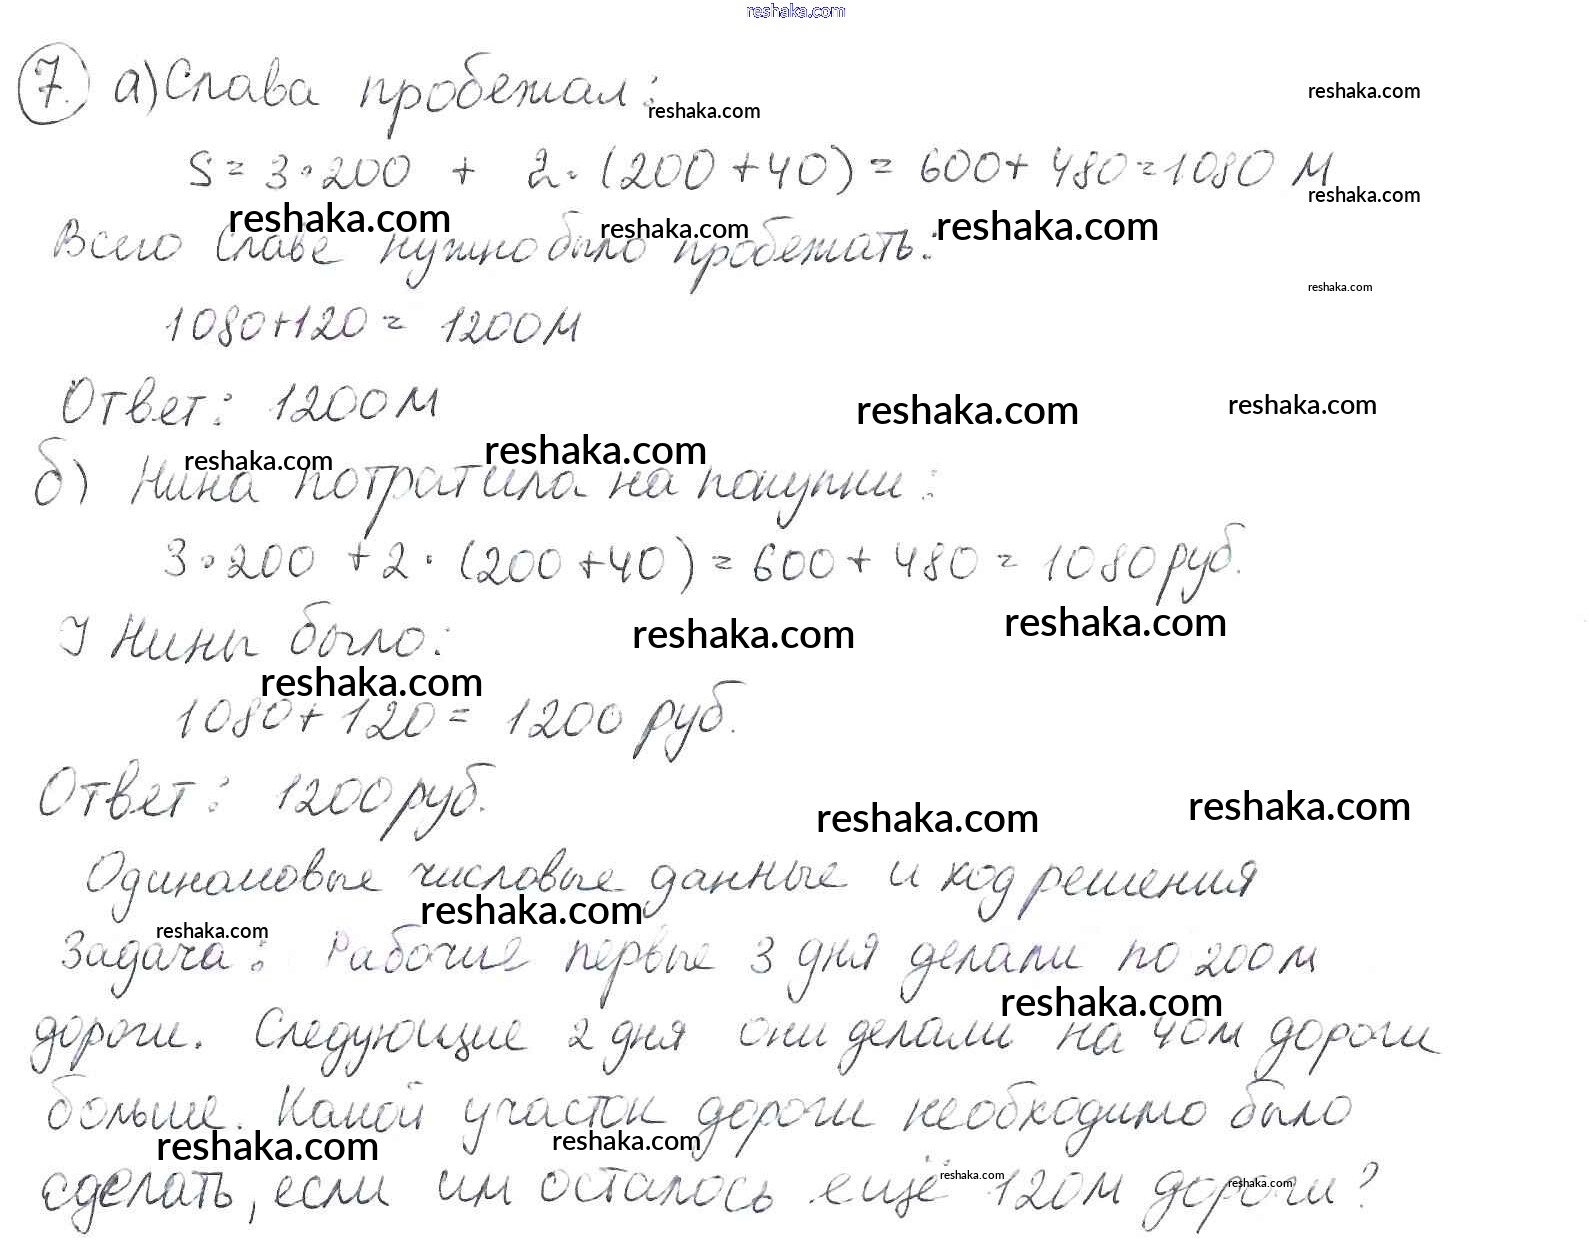 reshaka.com
7. а) Слава пробежал:
reshaka.com
reshaka.com
S = 3•200 + 2•(200+40) = 600+ 480=1080 м
reshaka.com
reshaka.com
reshaka.com
reshaka.com
Всего Славе нужно было пробежать:
reshaka.com
1080+120= 1200м
Ответ: 1200м
reshaka.com
reshaka.com
reshaka.com
reshaka.com
б) Нина потратила на покупки:
3•200 +2•(200+40)=600+ 480 = 1080 руб.
reshaka.com
reshaka.com
У Нины было:
reshaka.com
1080+120= 1200 руб.
Ответ: 1200 руб.
reshaka.com
reshaka.com
Одинаковые числовые данные и ход решения
reshaka.com
reshaka.com
Задача: Рабочие первые 3 дня делали по 200м
reshaka.com
дороги. Следующие 2 дня они делали на 40м дороги
больше. Какой участок дороги необходимо было
reshaka.com
reshaka.com
reshaka.com
reshaka.com
сделать, если им осталось ещё 120м дороги?